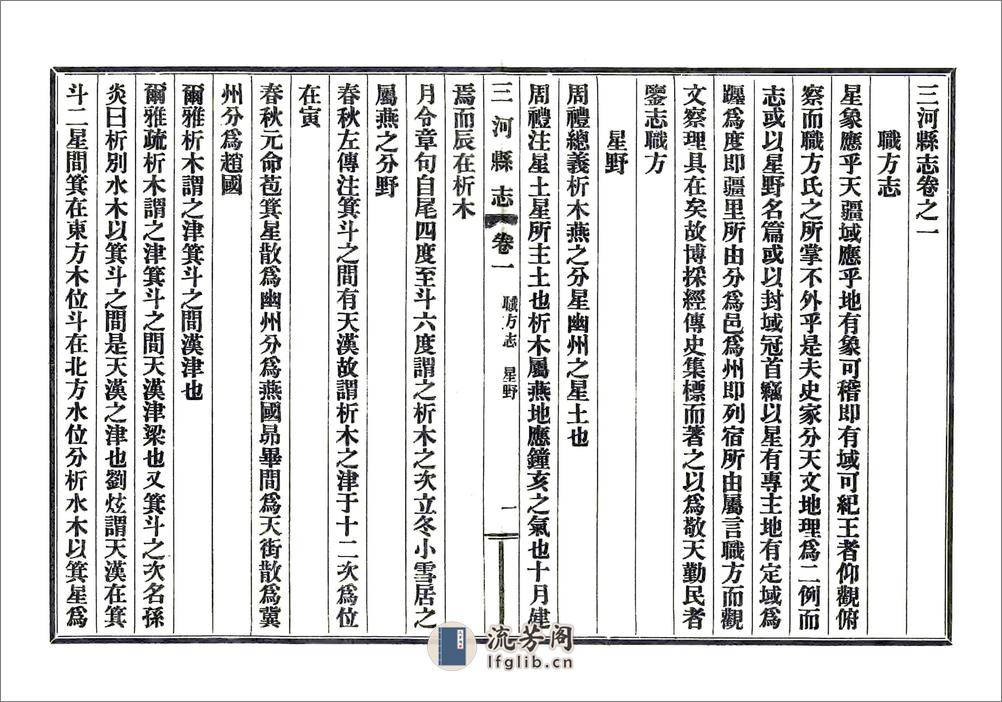 三河縣志卷之一
職方志
星象應乎天疆域應乎地有象可稽即有域可紀王者仰觀俯
察而職方氏之所掌不外乎是夫史家分天文地理爲二例而
志或以星野名篇或以封域冠首竊以星有專主地有定域爲
躔爲度即疆里所由分爲邑爲州即列宿所由屬言職方而觀
文察理具在矣故博採經傳史集標而著之以爲敬天勤民者
鑒志職方
星野
周禮總義析木燕之分星幽州之星土也
周禮注星土星所主土也析木屬燕地應鐘亥之氣也十月建
三河縣志
卷一
職方志
星野
一
焉而辰在析木
月令章句自尾四度至斗六度謂之析木之次立冬小雪居之
屬燕之分野
春秋左傳注箕斗之間有天漢故謂析木之津于十二次爲位
在寅
春秋元命苞箕星散爲幽州分爲燕國昴畢間爲天街散爲冀
州分爲趙國
爾雅析木謂之津箕斗之間漢津也
爾雅疏析木謂之津箕斗之間天漢津梁也又箕斗之次名孫
炎曰析別水木以箕斗之間是天漢之津也劉炫謂天漢在箕
斗二星間箕在東方木位斗在北方水位分析水木以箕星爲
流芳阁
lfglib.cn